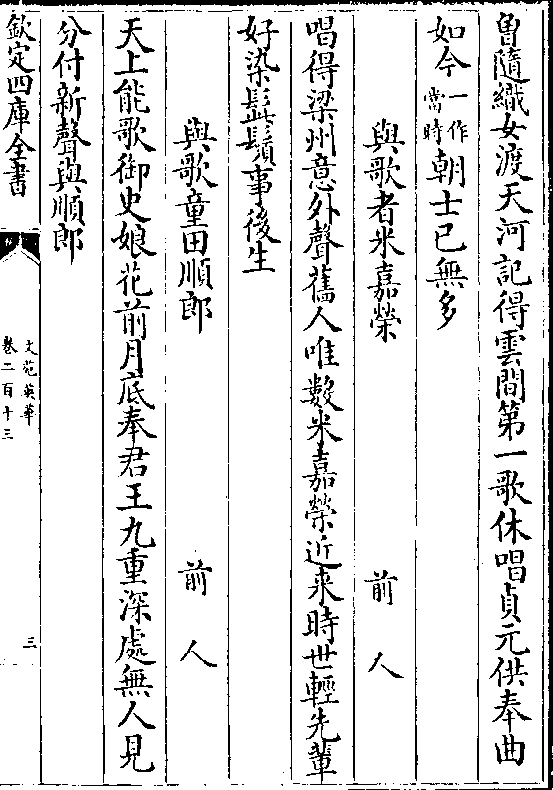 曽隨織女渡天河記得雲間第一歌休唱貞元供奉曲
如今一作當時朝士已無多
與歌者米嘉榮 前人
唱得梁州意外聲舊人唯數米嘉榮近来時世輕先輩
好染髭鬚事後生
與歌童田順郎 前人
天上能歌御史娘花前月底奉君王九重深處無人見
分付新聲與順郎
欽定四庫全書
文苑英華
卷二百十三
三